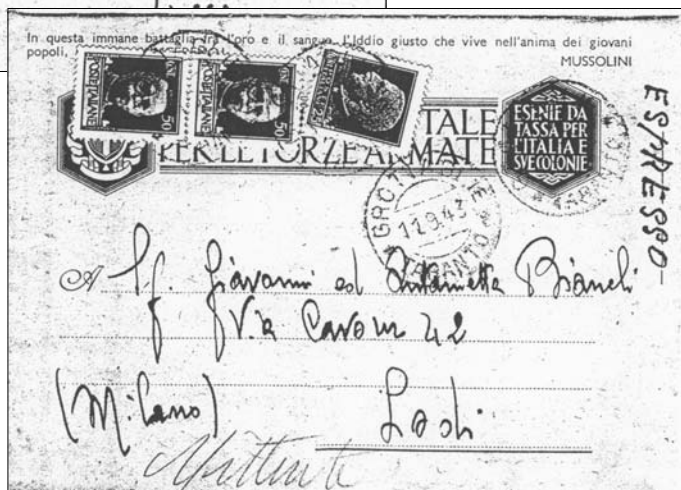 In questa immane battaglia fra l'oro e il sangue, l'Iddio giusto che vive nell'anima dei giovani
popoli,
MUSSOLINI
POSTE ITALIANE
50
POSTE ITALIANE
50
TALE
PER LE FORZE ARMATE
ESENTE DA
TASSA PER
L'ITALIA E
SVE COLONIE
ESPRESSO
GROTTA
11.9.43
TARANTO
TARANTO
A Sig. Giovanni ed Antonietta Bianchi
Via Cavour 42
(Milano) Lodi